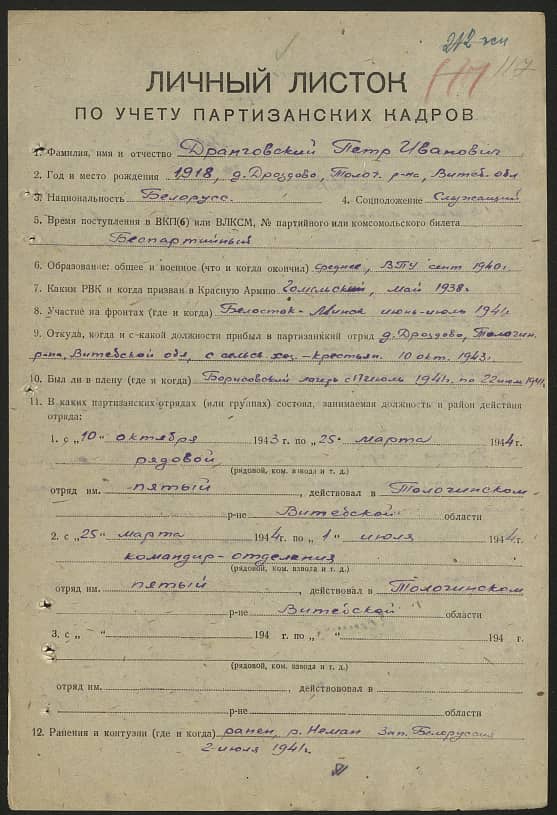 212
117
ЛИЧНЫЙ ЛИСТОК
ПО УЧЕТУ ПАРТИЗАНСКИХ КАДРОВ
1. Фамилия, имя и отчество Дранговский Петр Иванович
2. Год и место рождения 1918, д. Дроздово, Толоч. р-на, Витеб. обл
3. Национальность Белорусс. 4. Соцположение Служащий
5. Время поступления в ВКП(б) или ВЛКСМ, № партийного или комсомольского билета
Беспартийный
6. Образование: общее и военное (что и когда окончил) среднее, ВПУ сент 1940г.
7. Каким РВК и когда призван в Красную Армию Гомельский, май 1938г.
8. Участие на фронтах (где и когда) Белосток-Минск июнь-июль 1941г.
9. Откуда, когда и с какой должности прибыл в партизанский отряд д. Дроздово, Толочин.
р-на, Витебской обл, с сельск хоз.-крестьян. 10 окт. 1943г.
10. Был ли в плену (где и когда) Борисовский лагерь с июль 1941г. по 22 1941г.
11. В каких партизанских отрядах (или группах) состоял, занимаемая должность и район действия
отряда:
1. с „10“ октября 1943 г. по „25“ марта 1944 г.
рядовой
(рядовой, ком. взвода и т. д.)
отряд им. пятый, действовал в Толочинском
р-не Витебской области
2. с „25“ марта 1944 г. по „1“ июля 1944 г.
командир-отделения
(рядовой, ком. взвода и т. д.)
отряд им. пятый, действовал в Толочинском
р-не Витебской области
3. с „ “ 194 г. по „ “ 194 г.
(рядовой, ком. взвода и т. д.)
отряд им. , действововал в
р-не области
12. Ранения и контузии (где и когда) ранен, р. Неман Зап. Белоруссия
2 июля 1941г.